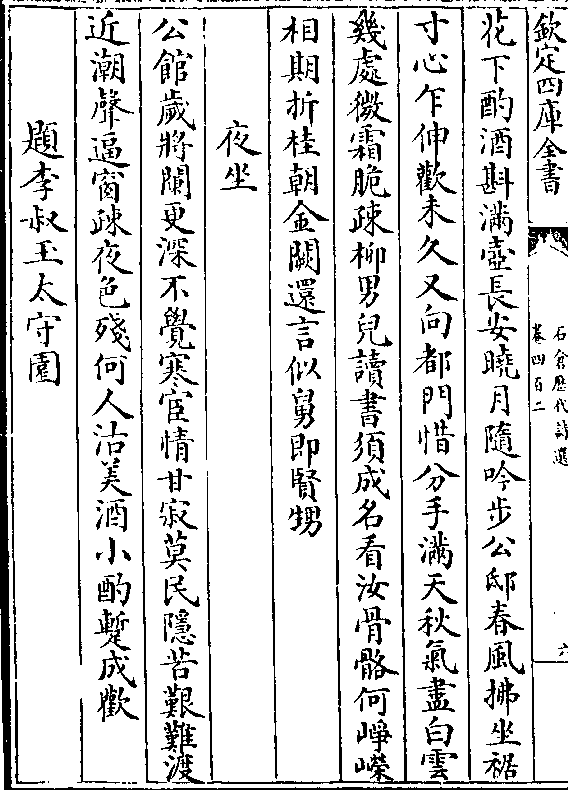 欽定四庫全書
石倉歴代詩選
卷四百二
六
花下酌酒斟滿壺長安曉月隨吟步公邸春風拂坐裾
寸心乍伸歡未久又向都門惜分手滿天秋氣盡白雲
幾處微霜脆疎柳男兒讀書須成名看汝骨骼何崢嶸
相期折桂朝金闕還言似舅即賢甥
夜坐
公館歲將闌更深不覺寒宦情甘寂莫民隱苦艱難渡
近潮聲逼窗疎夜色殘何人沽美酒小酌蹔成歡
題李叔玉太守園